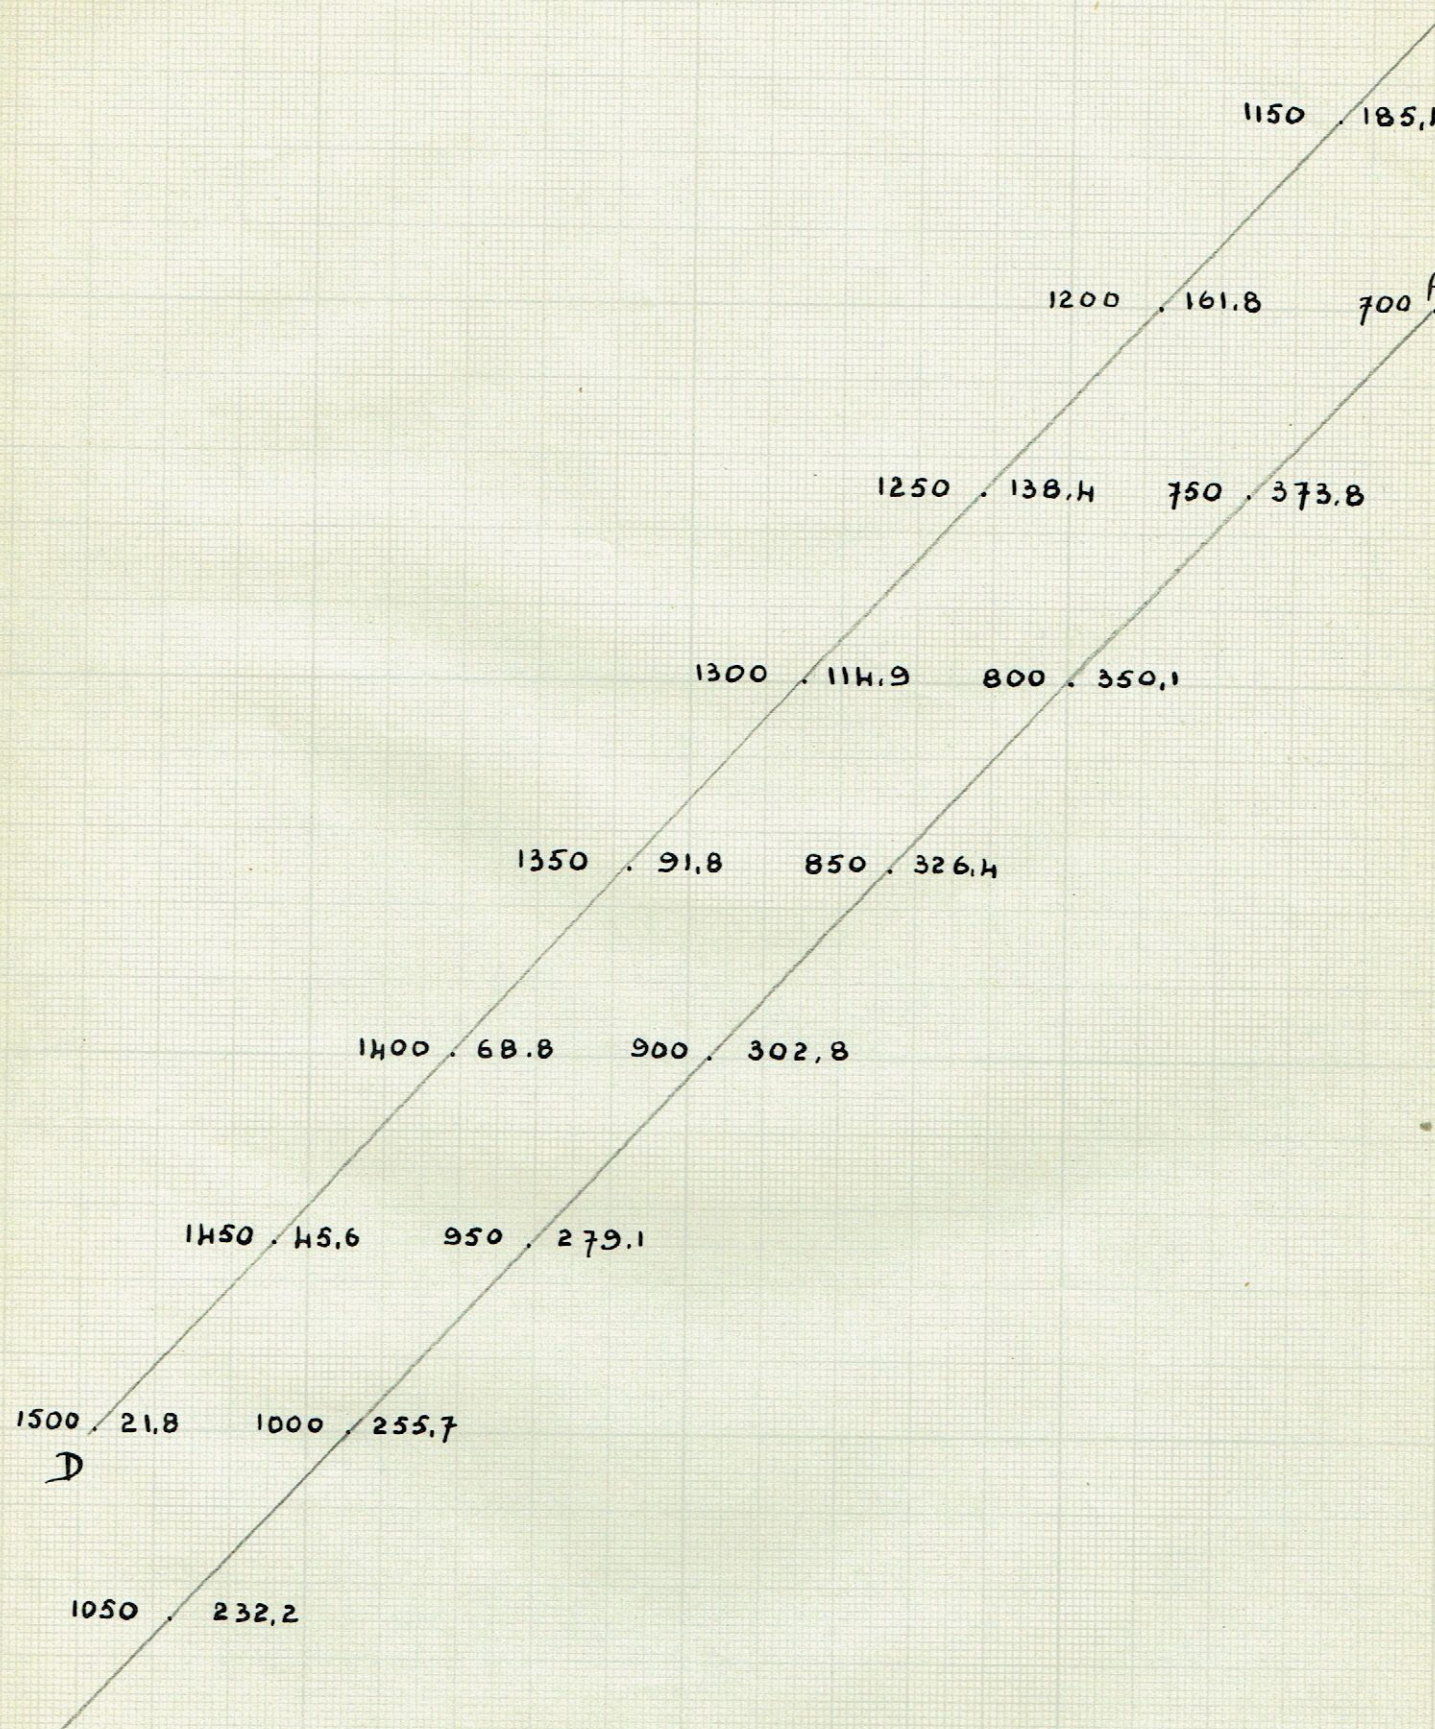 1150 . 185,1
1200 . 161.8 700
1250 . 138,4 750 . 373.8
1300 . 114.9 800 . 350,1
1350 . 91,8 850 . 326,4
1400 . 68.8 900 . 302,8
1450 . 45,6 950 . 279.1
1500 . 21,8 1000 . 255,7
D
1050 . 232,2